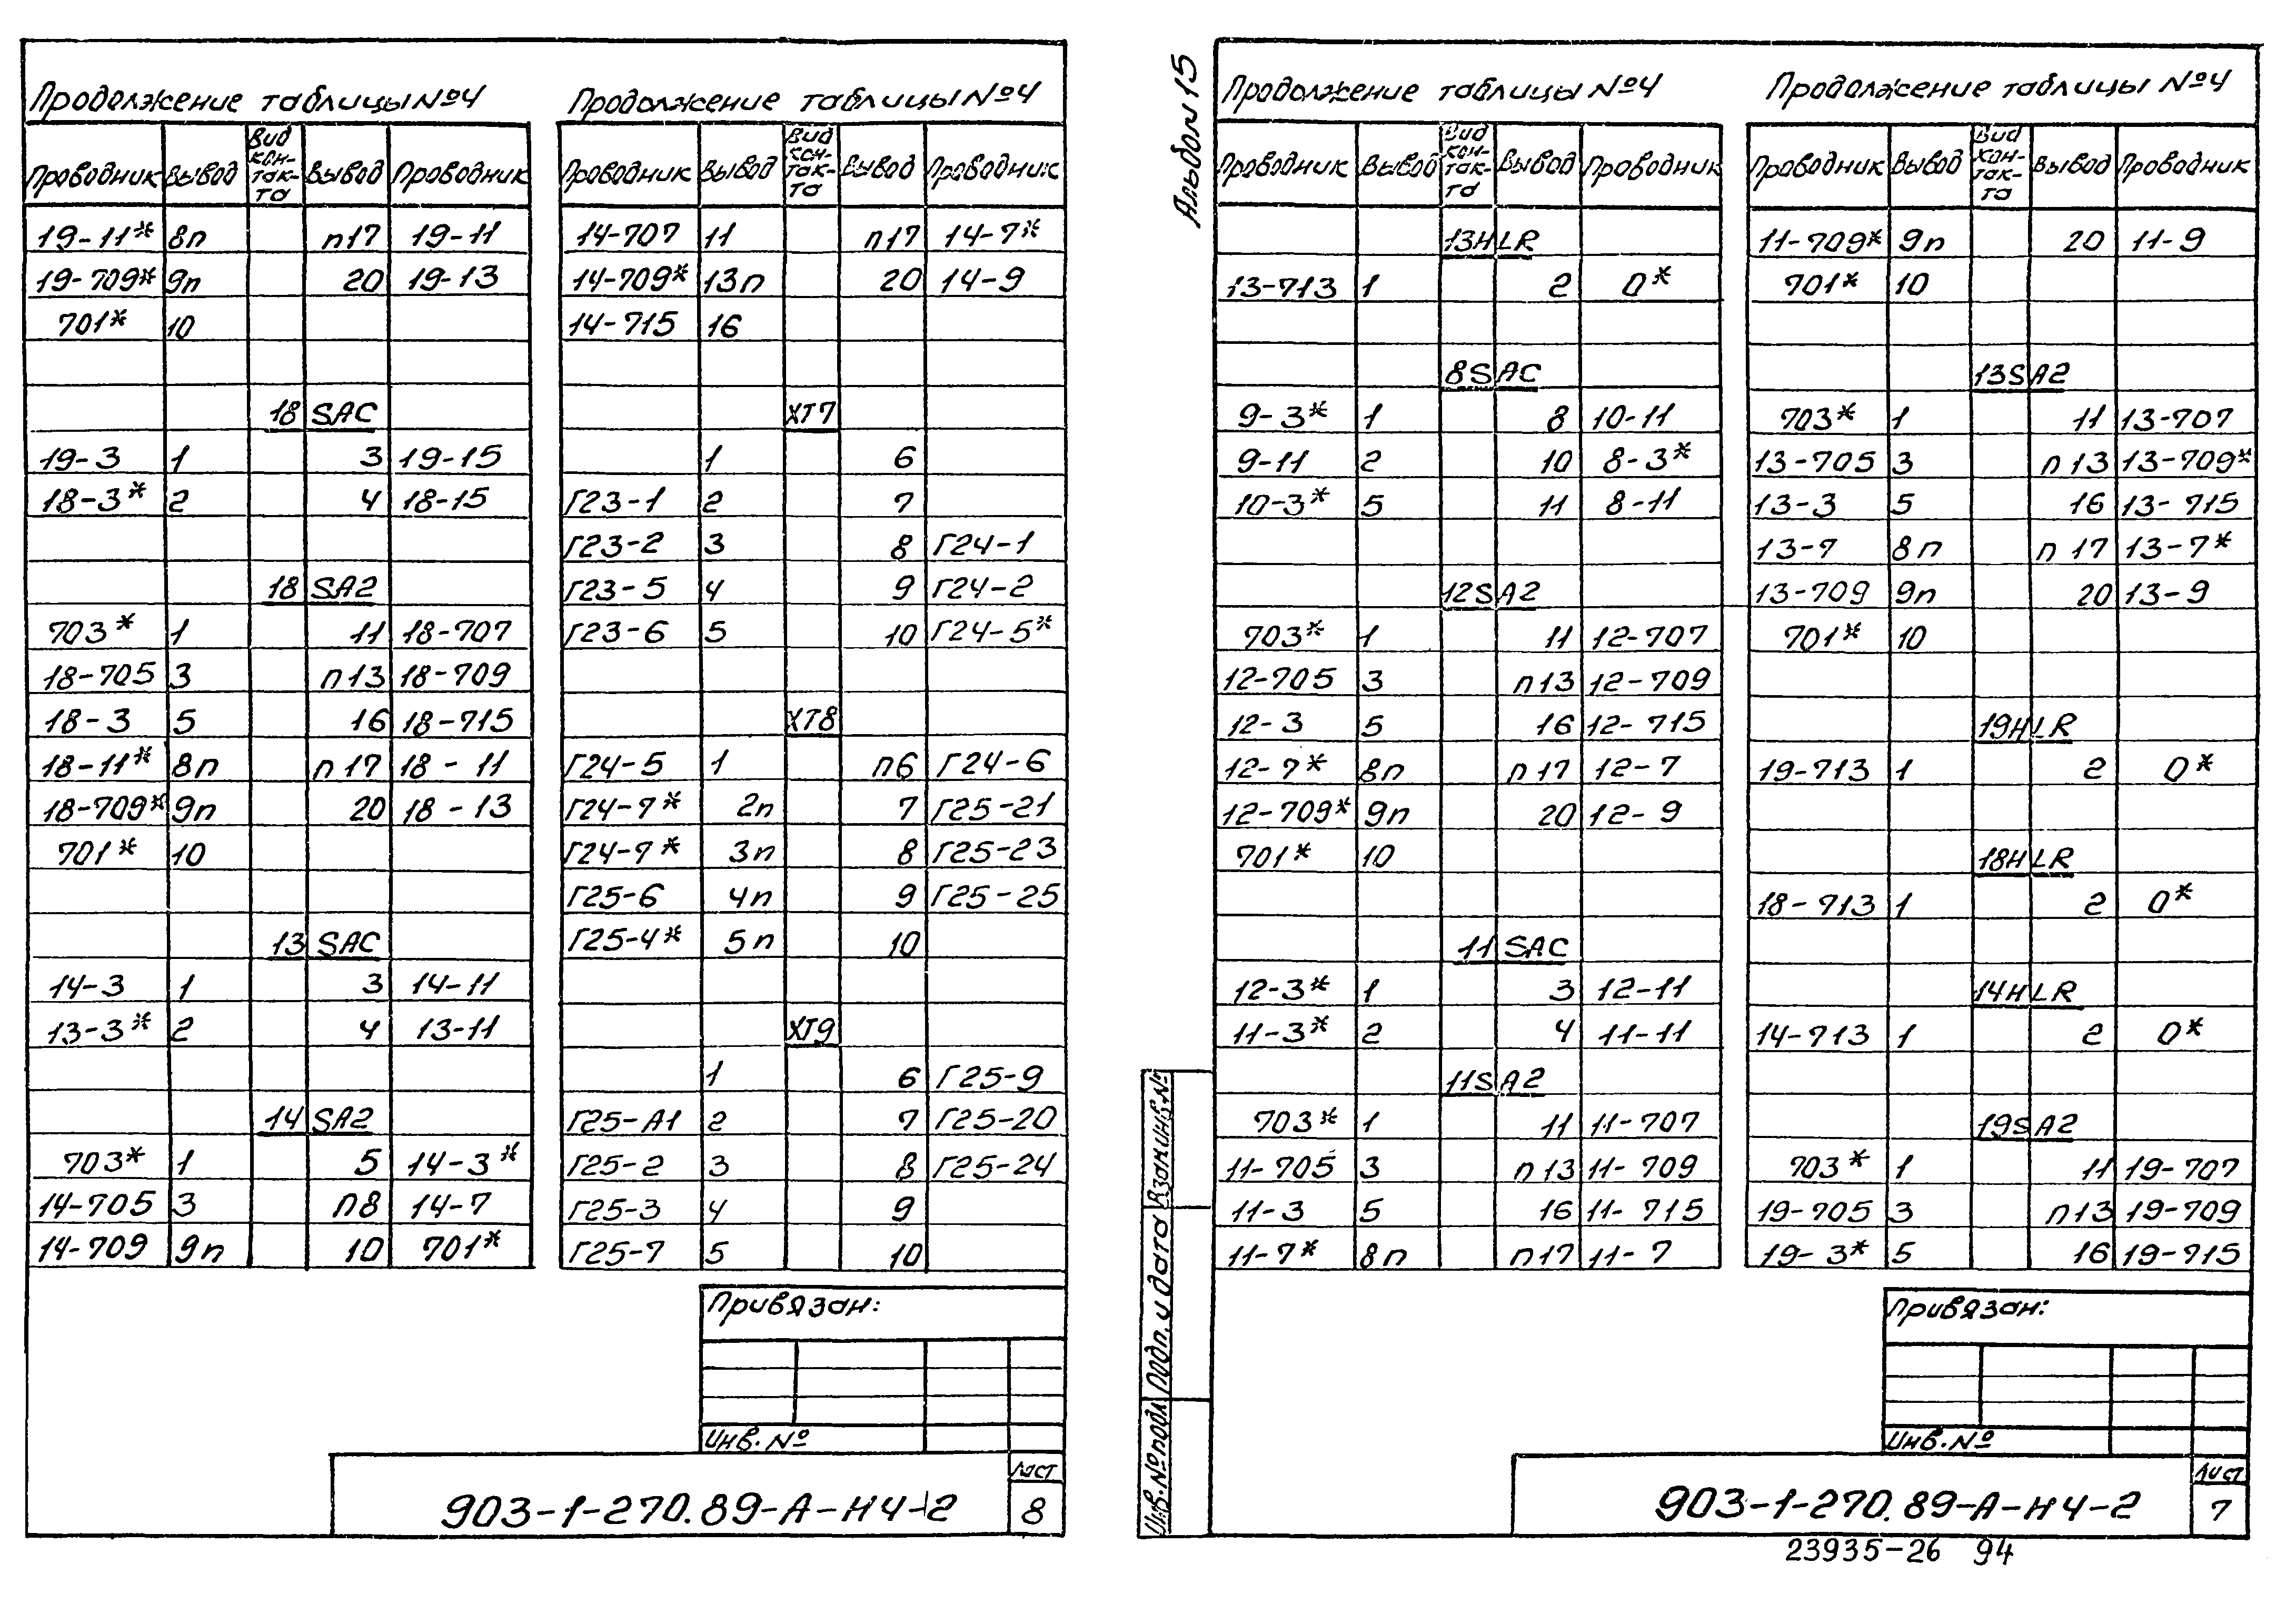 Продолжение таблицы №4
Проводник Вывод Вид кон-так-та Вывод Проводник
19-11* 8п п17 19-11
19-709* 9п 20 19-13
701* 10
18 SAC
19-3 1 3 19-15
18-3* 2 4 18-15
18 SA2
703* 1 11 18-707
18-705 3 п13 18-709
18-3 5 16 18-715
18-11* 8п п17 18-11
18-709* 9п 20 18-13
701* 10
13 SAC
14-3 1 3 14-11
13-3* 2 4 13-11
14 SA2
703* 1 5 14-3*
14-705 3 п8 14-7
14-709 9п 10 701*
Продолжение таблицы №4
Проводник Вывод Вид кон-так-та Вывод Проводник
14-707 11 п17 14-7*
14-709* 13п 20 14-9
14-715 16
XT7
1 6
Г23-1 2 7
Г23-2 3 8 Г24-1
Г23-5 4 9 Г24-2
Г23-6 5 10 Г24-5*
XT8
Г24-5 1 п6 Г24-6
Г24-7* 2п 7 Г25-21
Г24-7* 3п 8 Г25-23
Г25-6 4п 9 Г25-25
Г25-4* 5п 10
XT9
1 6 Г25-9
Г25-А1 2 7 Г25-20
Г25-2 3 8 Г25-24
Г25-3 4 9
Г25-7 5 10
Привязан:
Инв.№
903-1-270.89-А-Н4-2
Лист
8
Альбом 15
Продолжение таблицы №4
Проводник Вывод Вид кон-так-та Вывод Проводник
13HLR
13-713 1 2 0*
8SAC
9-3* 1 8 10-11
9-11 2 10 8-3*
10-3* 5 11 8-11
12SA2
703* 1 11 12-707
12-705 3 п13 12-709
12-3 5 16 12-715
12-7* 8п п17 12-7
12-709* 9п 20 12-9
701* 10
11 SAC
12-3* 1 3 12-11
11-3* 2 4 11-11
11SA2
703* 1 11 11-707
11-705 3 п13 11-709
11-3 5 16 11-715
11-7* 8п п17 11-7
Продолжение таблицы №4
Проводник Вывод Вид кон-так-та Вывод Проводник
11-709* 9п 20 11-9
701* 10
13SA2
703* 1 11 13-707
13-705 3 п13 13-709*
13-3 5 16 13-715
13-7 8п п17 13-7*
13-709 9п 20 13-9
701* 10
19HLR
19-713 1 2 0*
18HLR
18-713 1 2 0*
14HLR
14-713 1 2 0*
19SA2
703* 1 11 19-707
19-705 3 п13 19-709
19-3* 5 16 19-715
Инв.№подл Подп. и дата Взам.инв.№
Привязан:
Инв.№
903-1-270.89-А-Н4-2
Лист
7
23935-26 94